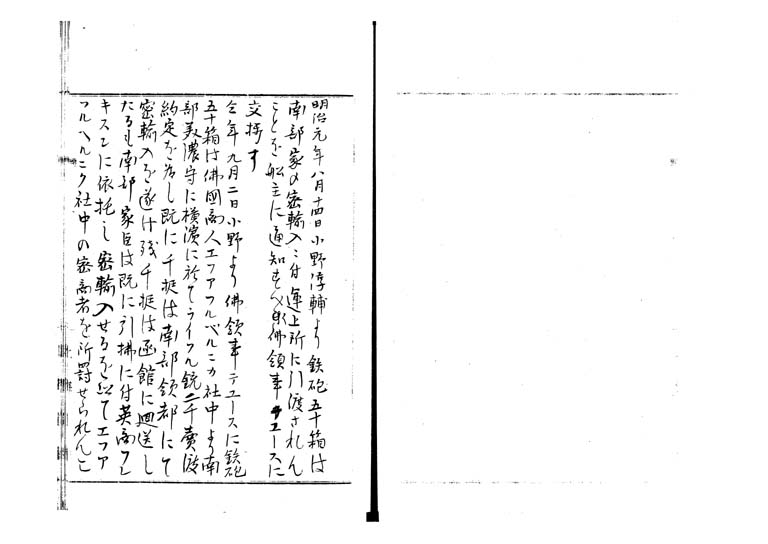 明治元年八月十四日小野淳輔より鉄砲五十箱は
南部家の密輸入ニ付運上所に引渡されん
ことを船主に通知すべき佛領事デユースに
交捗す
仝年九月二日小野より佛領事デユースに鉄砲
五十箱は佛國商人エフアフルベルニカ社中より南
部美濃守に横濱に於てライフル銃二千賣渡
約定を為し既に千挺は南部領都にて
密輸入を遂け残千挺は函館に廻送し
たるも南部家臣は既に引拂に付英商
キスンに依托し密輸入せるを以てエフア
フルベルニク社中の密商者を所罰せられんこ